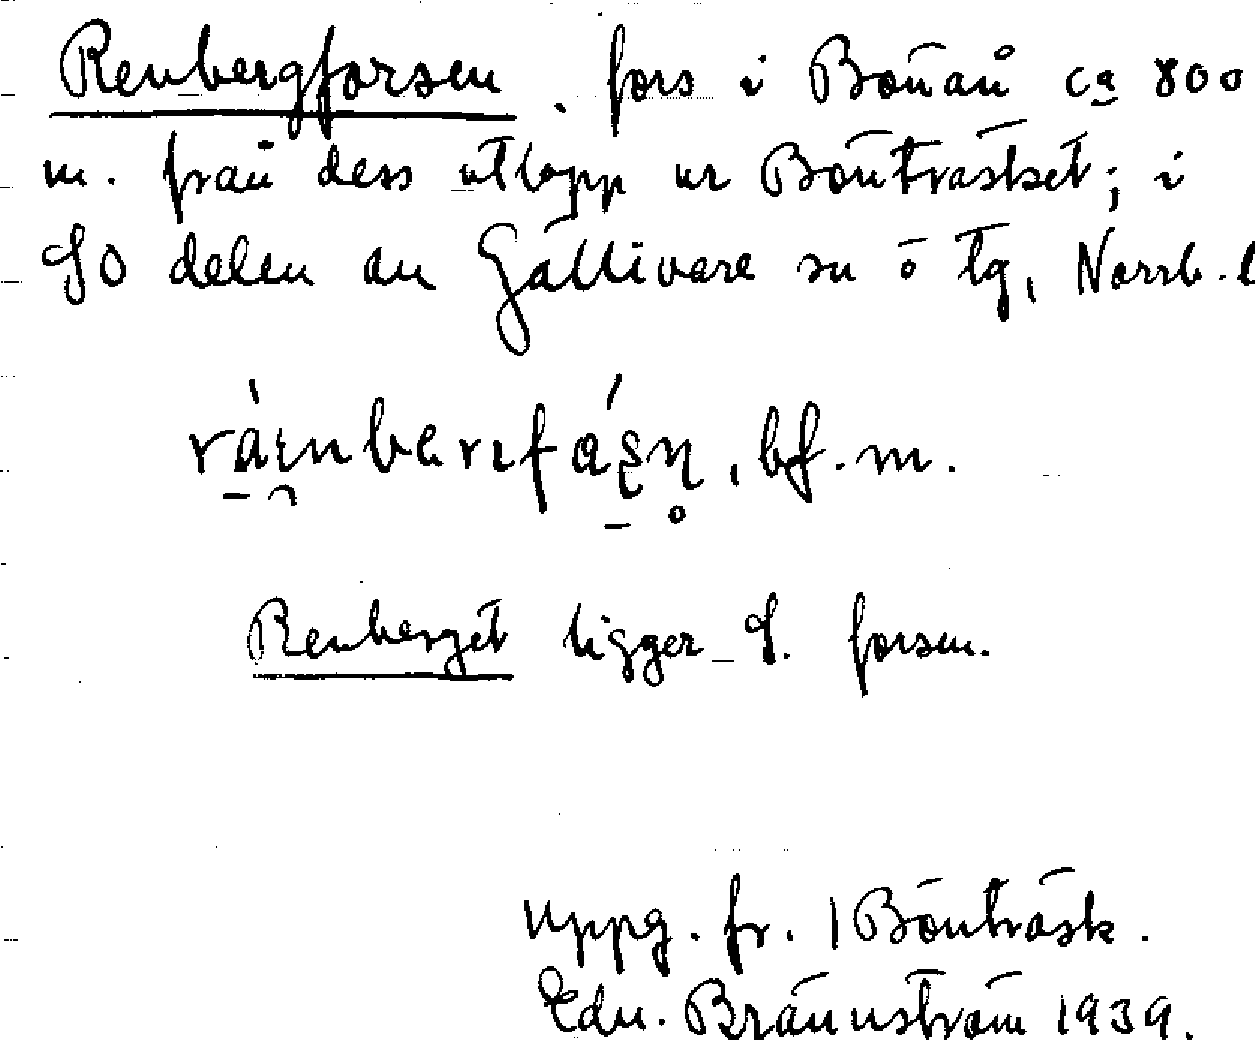 Renbergforsen, fors i Bönån ca 800
m. från dess utlopp ur Bönträsket; i
SO delen av Gällivare sn o tg, Norrb. l
bf. m.
Renberget ligger S. forsen.
uppg. fr. Bönträsk.
Edv. Brännström 1939.